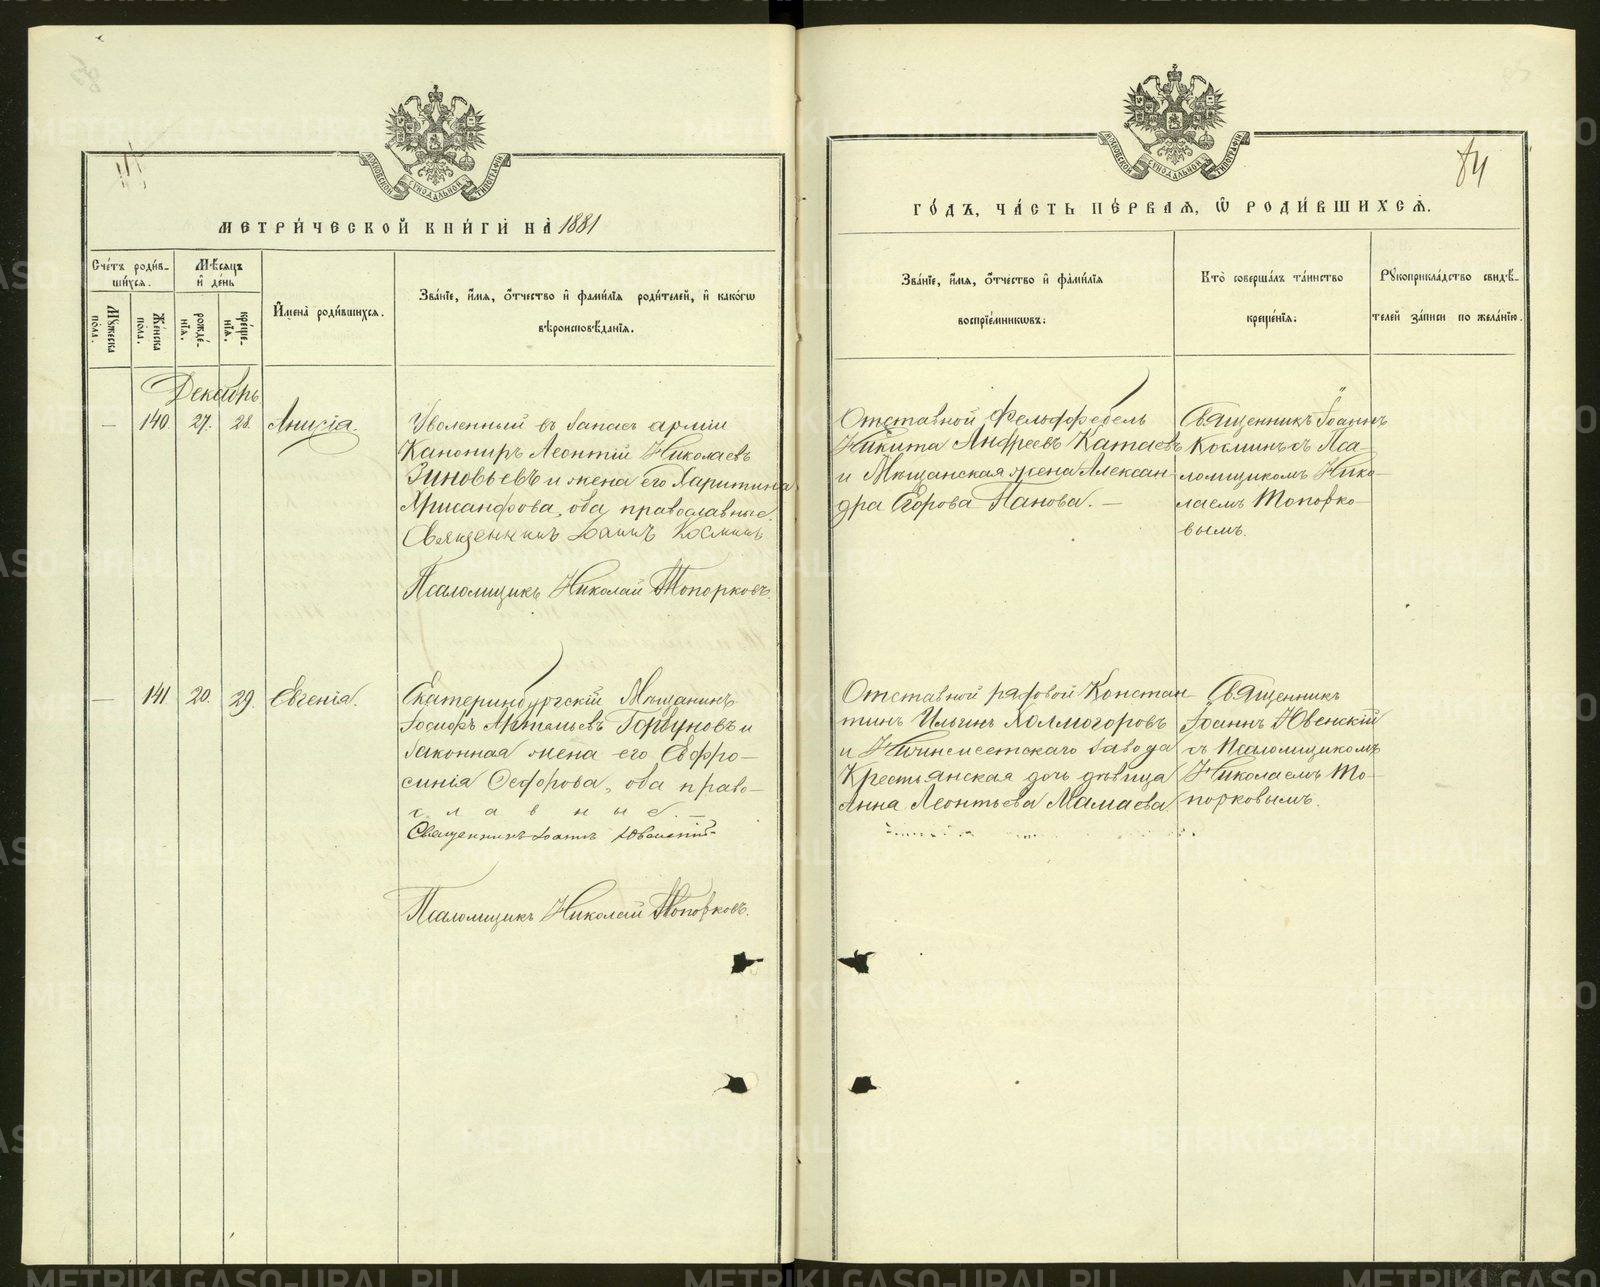 МЕТРИ́ЧЕСКОЙ КНИ́ГИ НА̀ 1881
Сче́тъ роди́в-
ши́хсѧ.
Мѣ́сѧцъ
и҆ де́нь
Мꙋ́жеска по́ла.
Же́нска по́ла.
рожде́-нїѧ.
креще́-нїѧ.
И҆мена̀ роди́вшихсѧ.
Зва́нїе, и҆́мѧ, ѻ҆́тчество и҆ фами́лїѧ роди́телей, и҆ како́гѡ
вѣроисповѣ́данїѧ.
Декабрь
— 140. 27. 28. Анисія.
Уволенный въ запасъ арміи
Канониръ Леонтій Николаевъ
Зиновьевъ и жена его Харитина
Хрисанфова, оба православные.
Священникъ Іоаннъ Косминъ
Псаломщикъ Николай Топорковъ.
— 141 20. 29. Евгенія.
Екатеринбургскій Мѣщанинъ
Іосифъ Артемьевъ Горбуновъ и
законная жена его Евфро-
синія Ѳедорова, оба право-
славные. —
Священникъ Іоаннъ Ювенскій
Псаломщикъ Николай Топорковъ.
84
ГО́ДЪ, ЧА́СТЬ ПЕ́РВАѦ, Ѡ҆ РОДИ́ВШИХСѦ.
Зва́нїе, и҆́мѧ, ѻ҆́тчество и҆ фами́лїѧ
воспрїе́мниковъ.
Кто̀ соверша́лъ та́инство
креще́нїѧ.
Рꙋкоприкла́дство свидѣ́-
телей за́писи по жела́нїю.
Отставной фельдфебель
Никита Андреевъ Катаевъ
и Мѣщанская жена Алексан-
дра Егорова Панова. —
Священникъ Іоаннъ
Косминъ съ Пса-
ломщикомъ Нико-
лаемъ Топорко-
вымъ.
Отставной рядовой Констан-
тинъ Ильинъ Холмогоровъ
и Нижнеисетскаго завода
Крестьянская дочь дѣвица
Анна Леонтьева Мамаева
Священникъ
Іоаннъ Ювенскій
съ Псаломщикомъ
Николаемъ То-
порковымъ.
METRIKI.GASO-URAL.RU